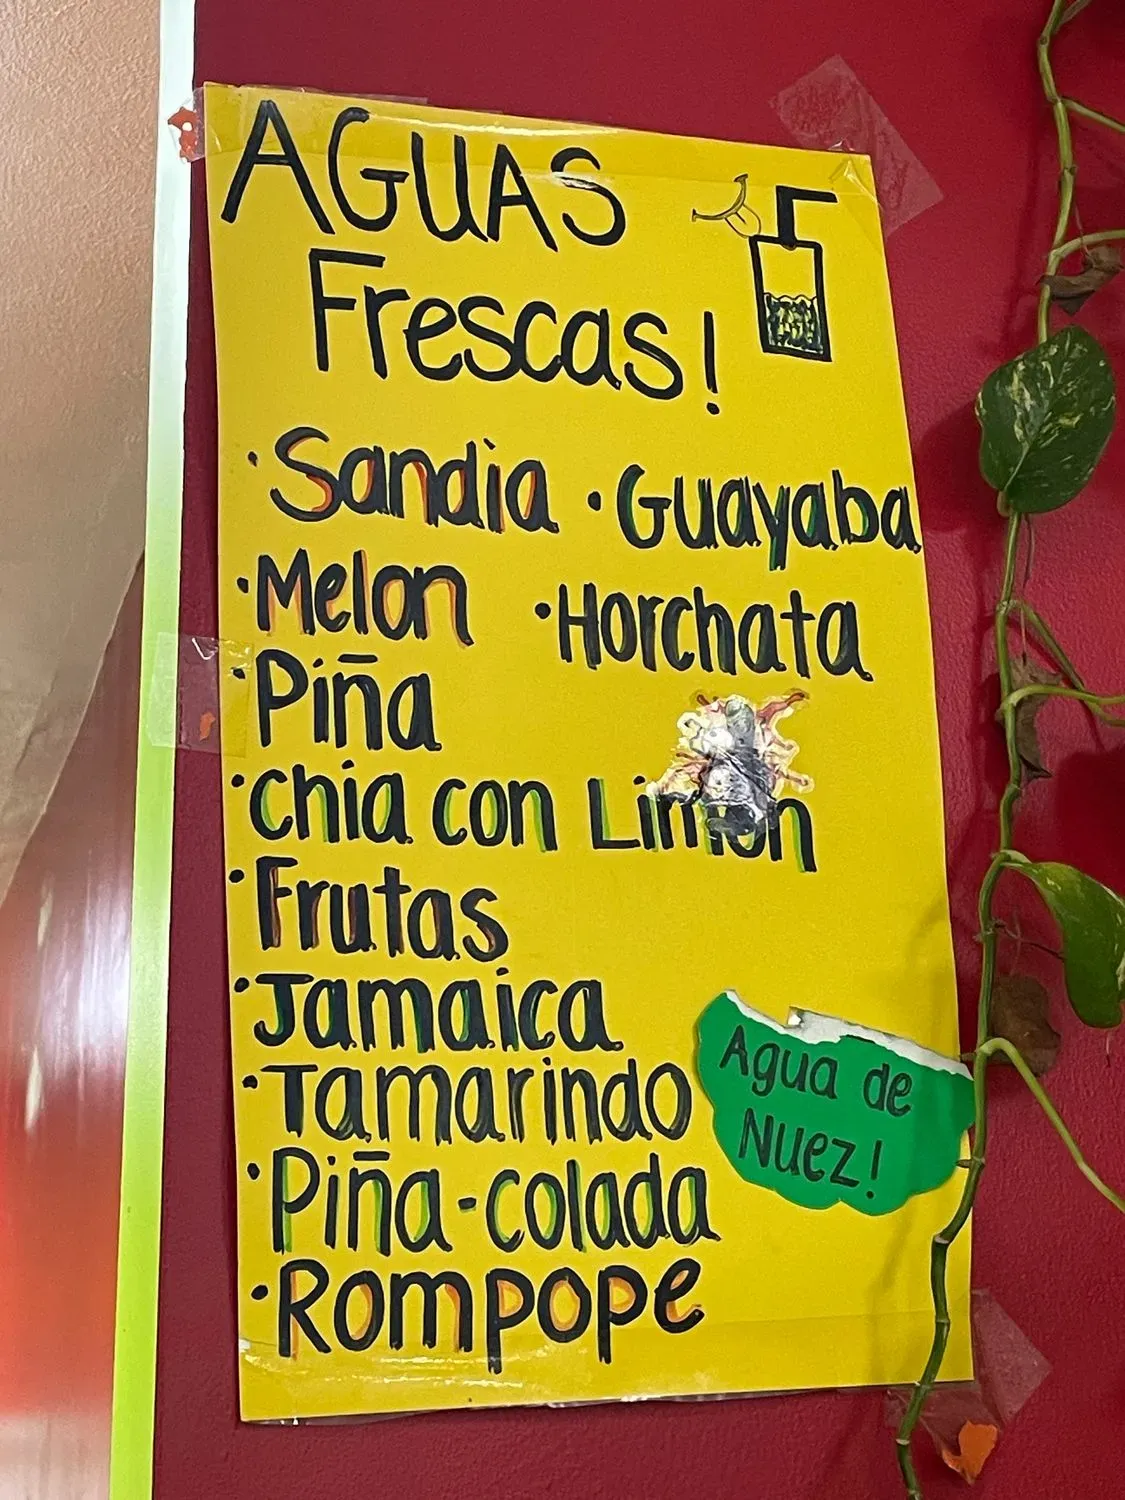 AGUAS
Frescas!
·Sandia ·Guayaba
·Melon ·Horchata
·Piña
·chia con Limón
·Frutas
·Jamaica
·Tamarindo
·Piña-colada
·Rompope
Agua de
Nuez!